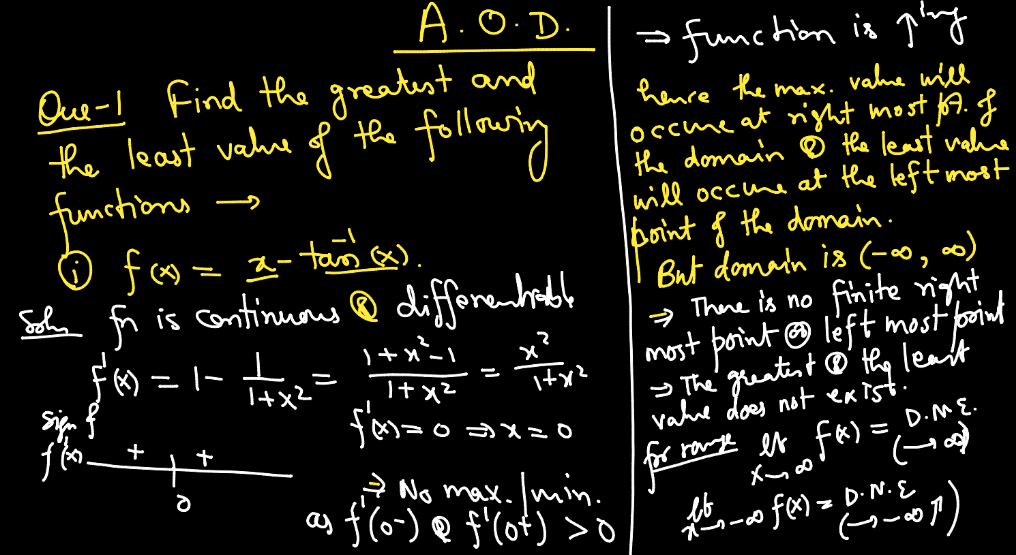 A.O.D.
Que-1 Find the greatest and
the least value of the following
functions →
(i) f(x) = x - tan⁻¹(x).
Soln fn is continuous & differentiable
f'(x) = 1 - 1/(1+x²) = (1+x²-1)/(1+x²) = x²/(1+x²)
f'(x) = 0 ⇒ x = 0
sign of
f'(x) + +
0
⇒ No max./min.
as f'(0-) & f'(0+) > 0
⇒ function is ↑ing
hence the max. value will
occure at right most pt. of
the domain & the least value
will occure at the left most
point of the domain.
But domain is (-∞, ∞)
⇒ There is no finite right
most point or left most point
⇒ The greatest & the least
value does not exist.
for range lt x→∞ f(x) = D.N.E. (→ ∞)
lt x→-∞ f(x) = D.N.E (→ -∞)